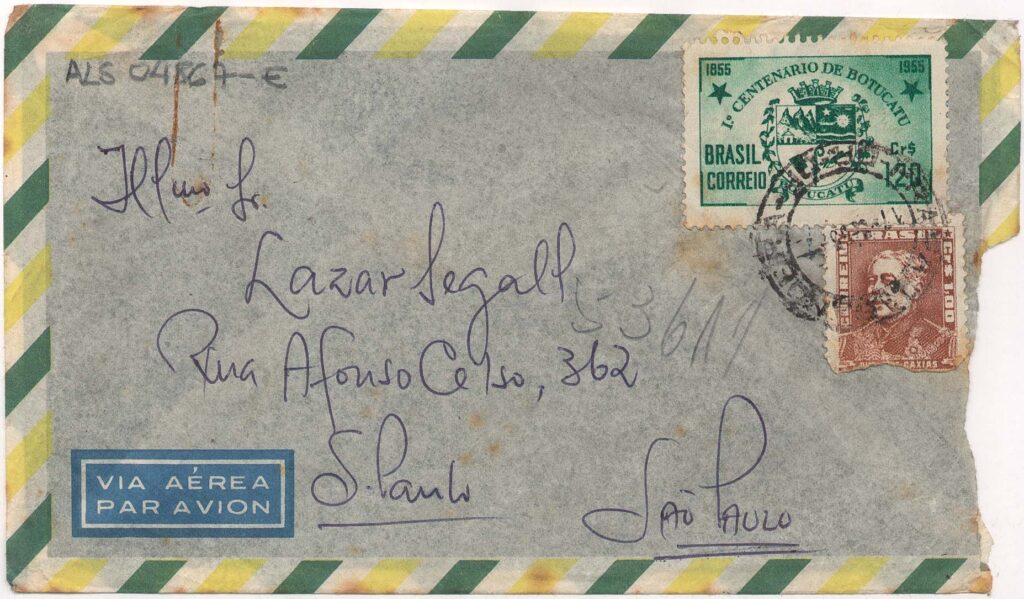 ALS 04567-E
1855 1955
1º CENTENÁRIO DE BOTUCATU
BRASIL
CORREIO
Cr$
1,20
BOTUCATU
CORREIO BRASIL Cr$ 1,00
CAXIAS
Illmo Sr.
Lazar Segall
Rua Afonso Celso, 362
S. Paulo
SÃO PAULO
VIA AÉREA
PAR AVION